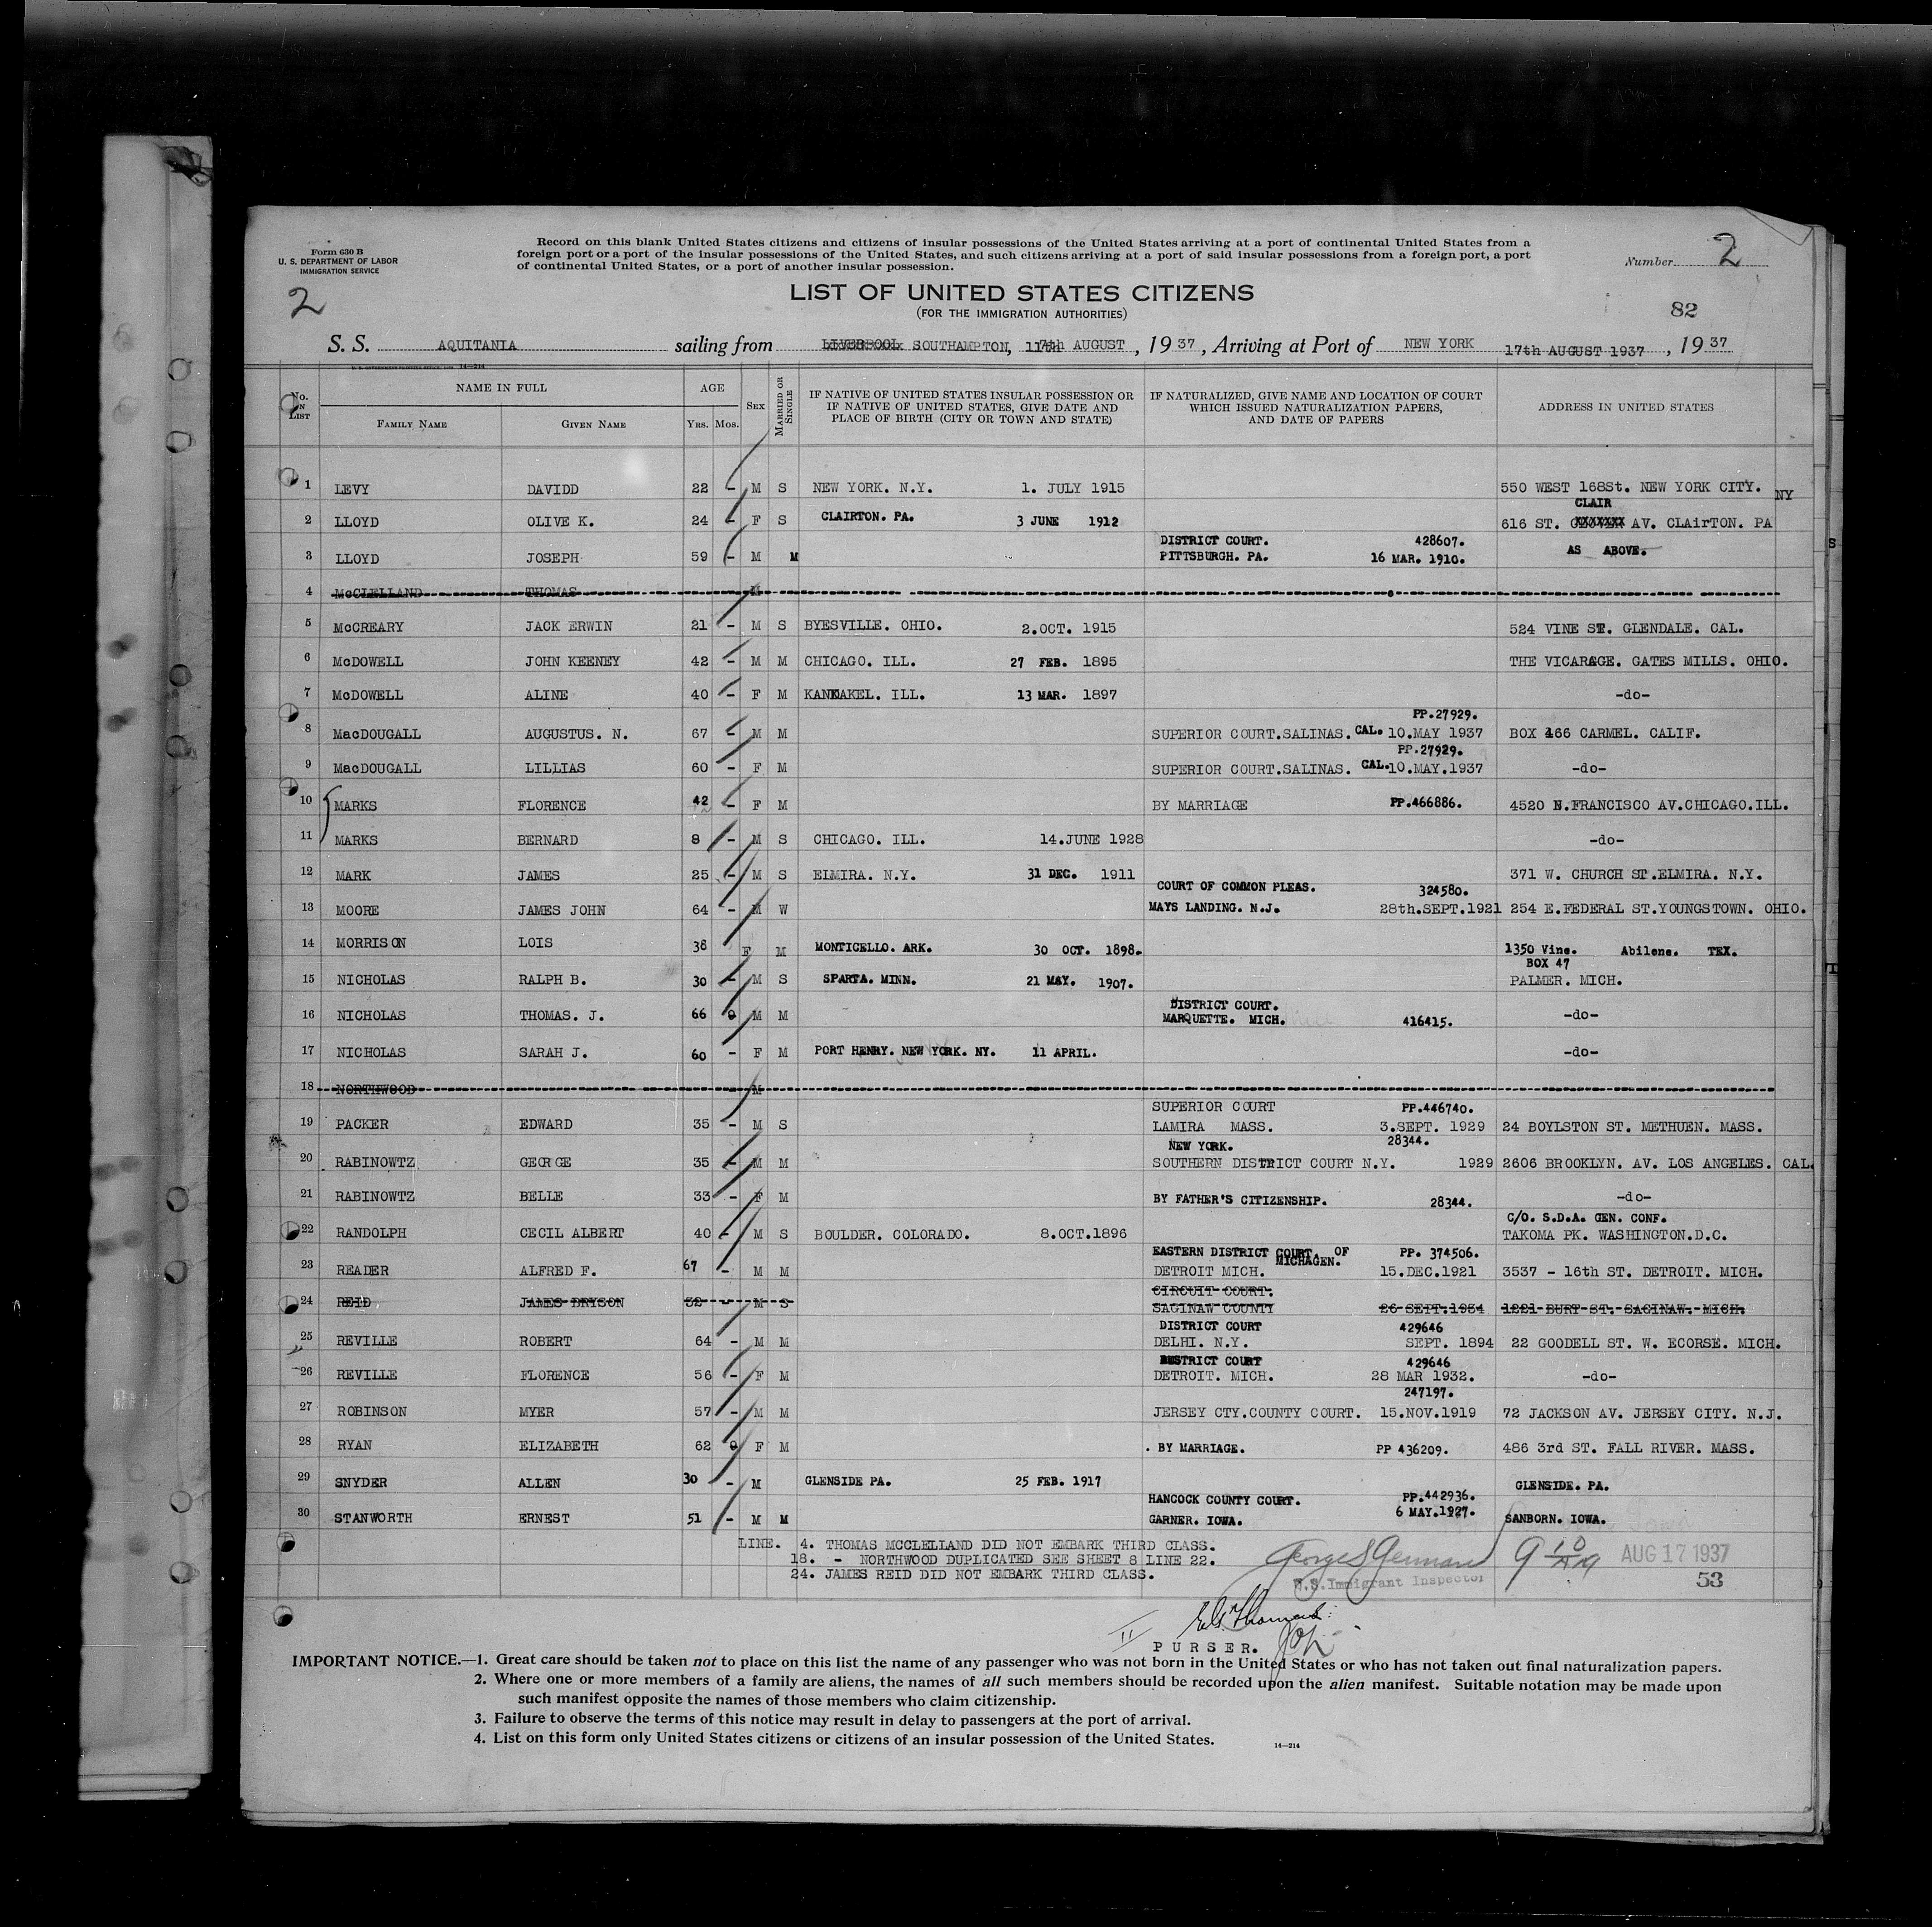 Form 630 B
U. S. DEPARTMENT OF LABOR
IMMIGRATION SERVICE
Record on this blank United States citizens and citizens of insular possessions of the United States arriving at a port of continental United States from a
foreign port or a port of the insular possessions of the United States, and such citizens arriving at a port of said insular possessions from a foreign port, a port
of continental United States, or a port of another insular possession.
Number 2
2
LIST OF UNITED STATES CITIZENS
(FOR THE IMMIGRATION AUTHORITIES)
82
S. S. AQUITANIA sailing from LIVERPOOL SOUTHAMPTON, 11th AUGUST, 1937, Arriving at Port of NEW YORK 17th AUGUST 1937, 1937
No. ON LIST NAME IN FULL FAMILY NAME GIVEN NAME AGE YRS. MOS. SEX MARRIED OR SINGLE IF NATIVE OF UNITED STATES INSULAR POSSESSION OR IF NATIVE OF UNITED STATES, GIVE DATE AND PLACE OF BIRTH (CITY OR TOWN AND STATE) IF NATURALIZED, GIVE NAME AND LOCATION OF COURT WHICH ISSUED NATURALIZATION PAPERS, AND DATE OF PAPERS ADDRESS IN UNITED STATES
1 LEVY DAVIDD 22 - M S NEW YORK. N.Y. 1. JULY 1915 550 WEST 168St. NEW YORK CITY. NY
CLAIR
2 LLOYD OLIVE K. 24 - F S CLAIRTON. PA. 3 JUNE 1912 616 ST. AV. CLAirTON. PA
DISTRICT COURT. 428607.
3 LLOYD JOSEPH 59 - M M PITTSBURGH. PA. 16 MAR. 1910. AS ABOVE.
4 McCLELLAND THOMAS M
5 McCREARY JACK ERWIN 21 - M S BYESVILLE. OHIO. 2.OCT. 1915 524 VINE ST. GLENDALE. CAL.
6 McDOWELL JOHN KEENEY 42 - M M CHICAGO. ILL. 27 FEB. 1895 THE VICARAGE. GATES MILLS. OHIO.
7 McDOWELL ALINE 40 - F M KANKAKEL. ILL. 13 MAR. 1897 -do-
PP.27929.
8 MacDOUGALL AUGUSTUS. N. 67 - M M SUPERIOR COURT.SALINAS. CAL. 10.MAY 1937 BOX 166 CARMEL. CALIF.
PP.27929.
9 MacDOUGALL LILLIAS 60 - F M SUPERIOR COURT.SALINAS. CAL.10.MAY.1937 -do-
10 MARKS FLORENCE 42 - F M BY MARRIAGE PP.466886. 4520 N.FRANCISCO AV.CHICAGO.ILL.
11 MARKS BERNARD 8 - M S CHICAGO. ILL. 14.JUNE 1928 -do-
12 MARK JAMES 25 - M S ELMIRA. N.Y. 31 DEC. 1911 371 W. CHURCH ST.ELMIRA. N.Y.
COURT OF COMMON PLEAS. 324580.
13 MOORE JAMES JOHN 64 - M W MAYS LANDING. N.J. 28th.SEPT.1921 254 E.FEDERAL ST.YOUNGSTOWN. OHIO.
14 MORRISON LOIS 38 F M MONTICELLO. ARK. 30 OCT. 1898. 1350 Vine. Abilene. TEX.
BOX 47
15 NICHOLAS RALPH B. 30 - M S SPARTA. MINN. 21 MAY. 1907. PALMER. MICH.
DISTRICT COURT.
16 NICHOLAS THOMAS. J. 66 0 M M MARQUETTE. MICH. 416415. -do-
17 NICHOLAS SARAH J. 60 - F M PORT HENRY. NEW YORK. NY. 11 APRIL. -do-
18 NORTHWOOD M
SUPERIOR COURT PP.446740.
19 PACKER EDWARD 35 - M S LAMIRA MASS. 3.SEPT. 1929 24 BOYLSTON ST. METHUEN. MASS.
NEW YORK. 28344.
20 RABINOWTZ GEORGE 35 - M M SOUTHERN DISTRICT COURT N.Y. 1929 2606 BROOKLYN. AV. LOS ANGELES. CAL.
21 RABINOWTZ BELLE 33 - F M BY FATHER'S CITIZENSHIP. 28344. -do-
C/O. S.D.A. GEN. CONF.
22 RANDOLPH CECIL ALBERT 40 - M S BOULDER. COLORADO. 8.OCT.1896 TAKOMA PK. WASHINGTON.D.C.
EASTERN DISTRICT COURT. OF MICHAGEN. PP. 374506.
23 READER ALFRED F. 67 - M M DETROIT MICH. 15.DEC.1921 3537 - 16th ST. DETROIT. MICH.
CIRCUIT COURT.
24 REID JAMES DRYSON 32 - M S SAGINAW COUNTY 26 SEPT.1934 1221 BURT ST. SAGINAW. MICH.
DISTRICT COURT 429646
25 REVILLE ROBERT 64 - M M DELHI. N.Y. SEPT. 1894 22 GOODELL ST. W. ECORSE. MICH.
DISTRICT COURT 429646
26 REVILLE FLORENCE 56 - F M DETROIT. MICH. 28 MAR 1932. -do-
247197.
27 ROBINSON MYER 57 - M M JERSEY CTY.COUNTY COURT. 15.NOV.1919 72 JACKSON AV. JERSEY CITY. N.J.
28 RYAN ELIZABETH 62 0 F M . BY MARRIAGE. PP 436209. 486 3rd ST. FALL RIVER. MASS.
29 SNYDER ALLEN 30 - M GLENSIDE PA. 25 FEB. 1917 GLENSIDE. PA.
HANCOCK COUNTY COURT. PP.442936.
30 STANWORTH ERNEST 51 - M M GARNER. IOWA. 6 MAY.1927. SANBORN. IOWA.
LINE. 4. THOMAS MCCLELLAND DID NOT EMBARK THIRD CLASS.
18. - NORTHWOOD DUPLICATED SEE SHEET 8 LINE 22.
24. JAMES REID DID NOT EMBARK THIRD CLASS.
AUG 17 1937
U.S.Immigrant Inspector
53
PURSER.
IMPORTANT NOTICE.—1. Great care should be taken not to place on this list the name of any passenger who was not born in the United States or who has not taken out final naturalization papers.
2. Where one or more members of a family are aliens, the names of all such members should be recorded upon the alien manifest. Suitable notation may be made upon
such manifest opposite the names of those members who claim citizenship.
3. Failure to observe the terms of this notice may result in delay to passengers at the port of arrival.
4. List on this form only United States citizens or citizens of an insular possession of the United States.
14—214